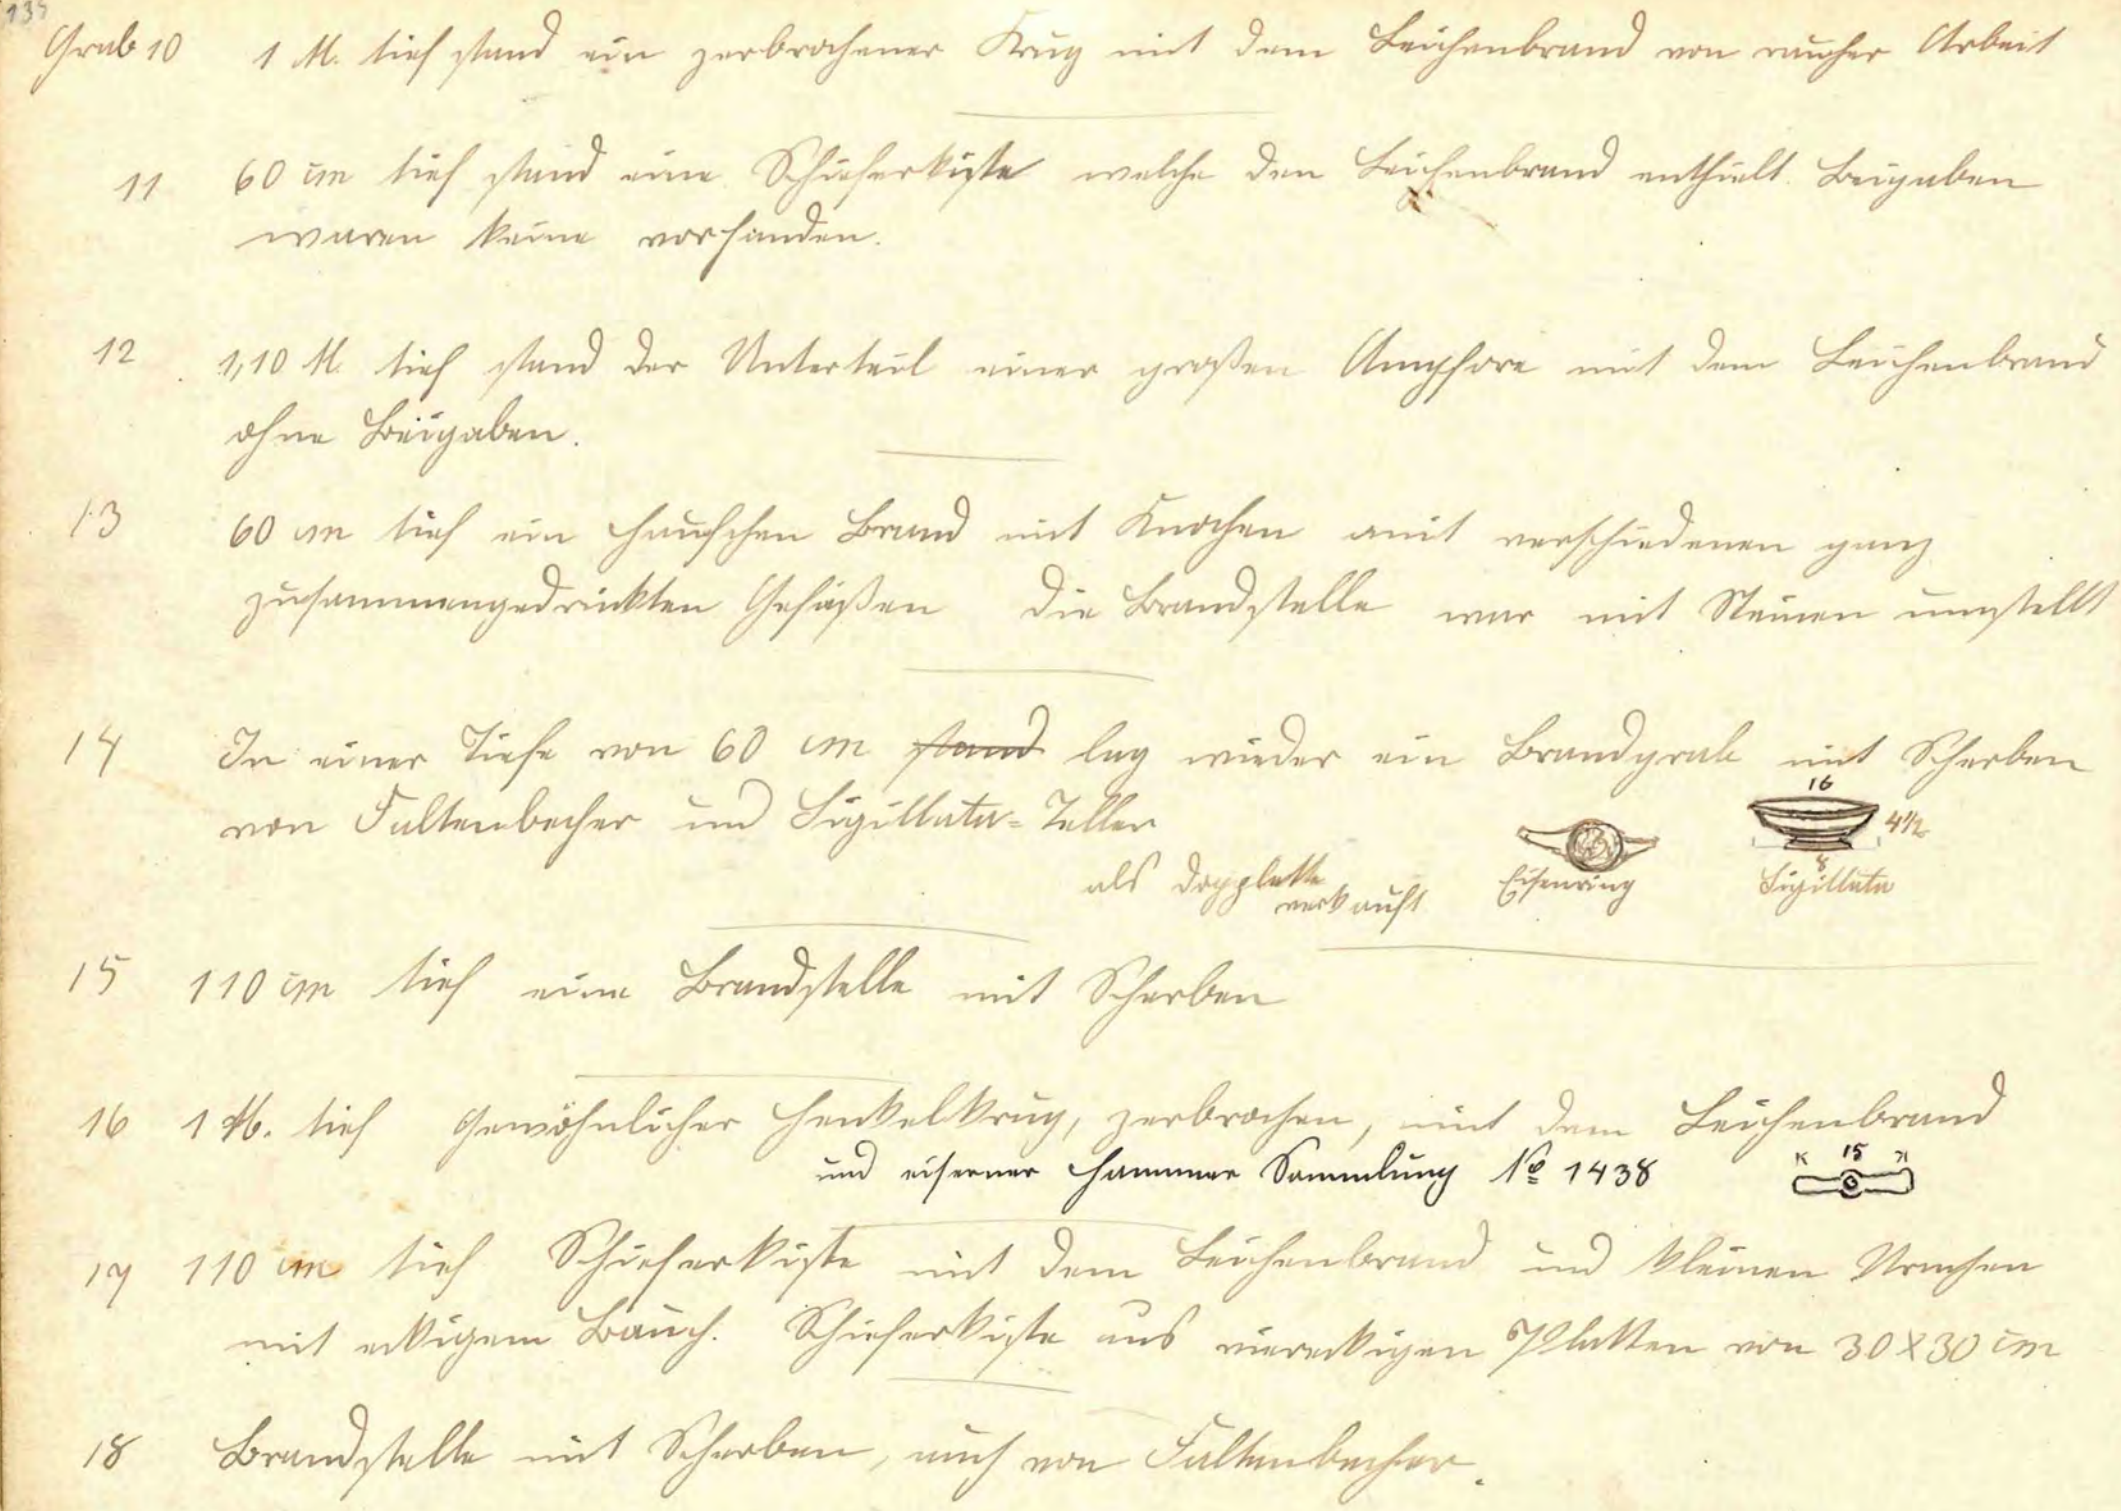 Grab 10 1 M. tief stand ein zerbrochener Krug mit dem Leichenbrand von rauher Arbeit
11 60 cm tief stand eine Schieferkiste welche den Leichenbrand enthielt. Beigaben
waren keine vorhanden.
12 1,10 M. tief stand der Unterteil einer großen Ampfore mit dem Leichenbrand
ohne Beigaben.
13 60 cm tief ein Häufchen Brand mit Knochen mit verschiedenen ganz
zusammengedrückten Gefäßen die Brandstelle war mit Steinen umstellt
14 In einer Tiefe von 60 cm stand lag wieder ein Brandgrab mit Scherben
von Faltenbecher und Sigillata-Teller
16
4 1/2
8
als Dopplette
verkauft
Eisenring
Sigillata
15 110 cm tief eine Brandstelle mit Scherben
16 1 M. tief Gewöhnlicher Henkelkrug, zerbrochen, mit dem Leichenbrand
und eiserner Hammer Sammlung No 1438
15
17 110 cm tief Schieferkiste mit dem Leichenbrand und kleinen Urnchen
mit eckigem Bauch. Schieferkiste aus viereckigen Platten von 30 X 30 cm
18 Brandstelle mit Scherben, auch von Faltenbecher.